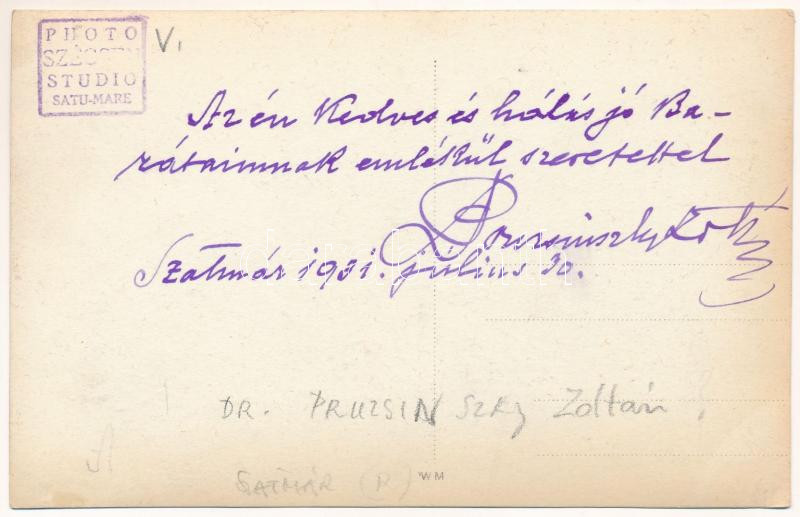 PHOTO
SZÉCSEN
STUDIO
SATU-MARE
V.
Az én Kedves és hálás jó Ba-
rátaimnak emlékül szeretettel
Szatmár 1931. július 30.
DR. PRUZSINSZKY Zoltán
SATMÁR (R)
WM